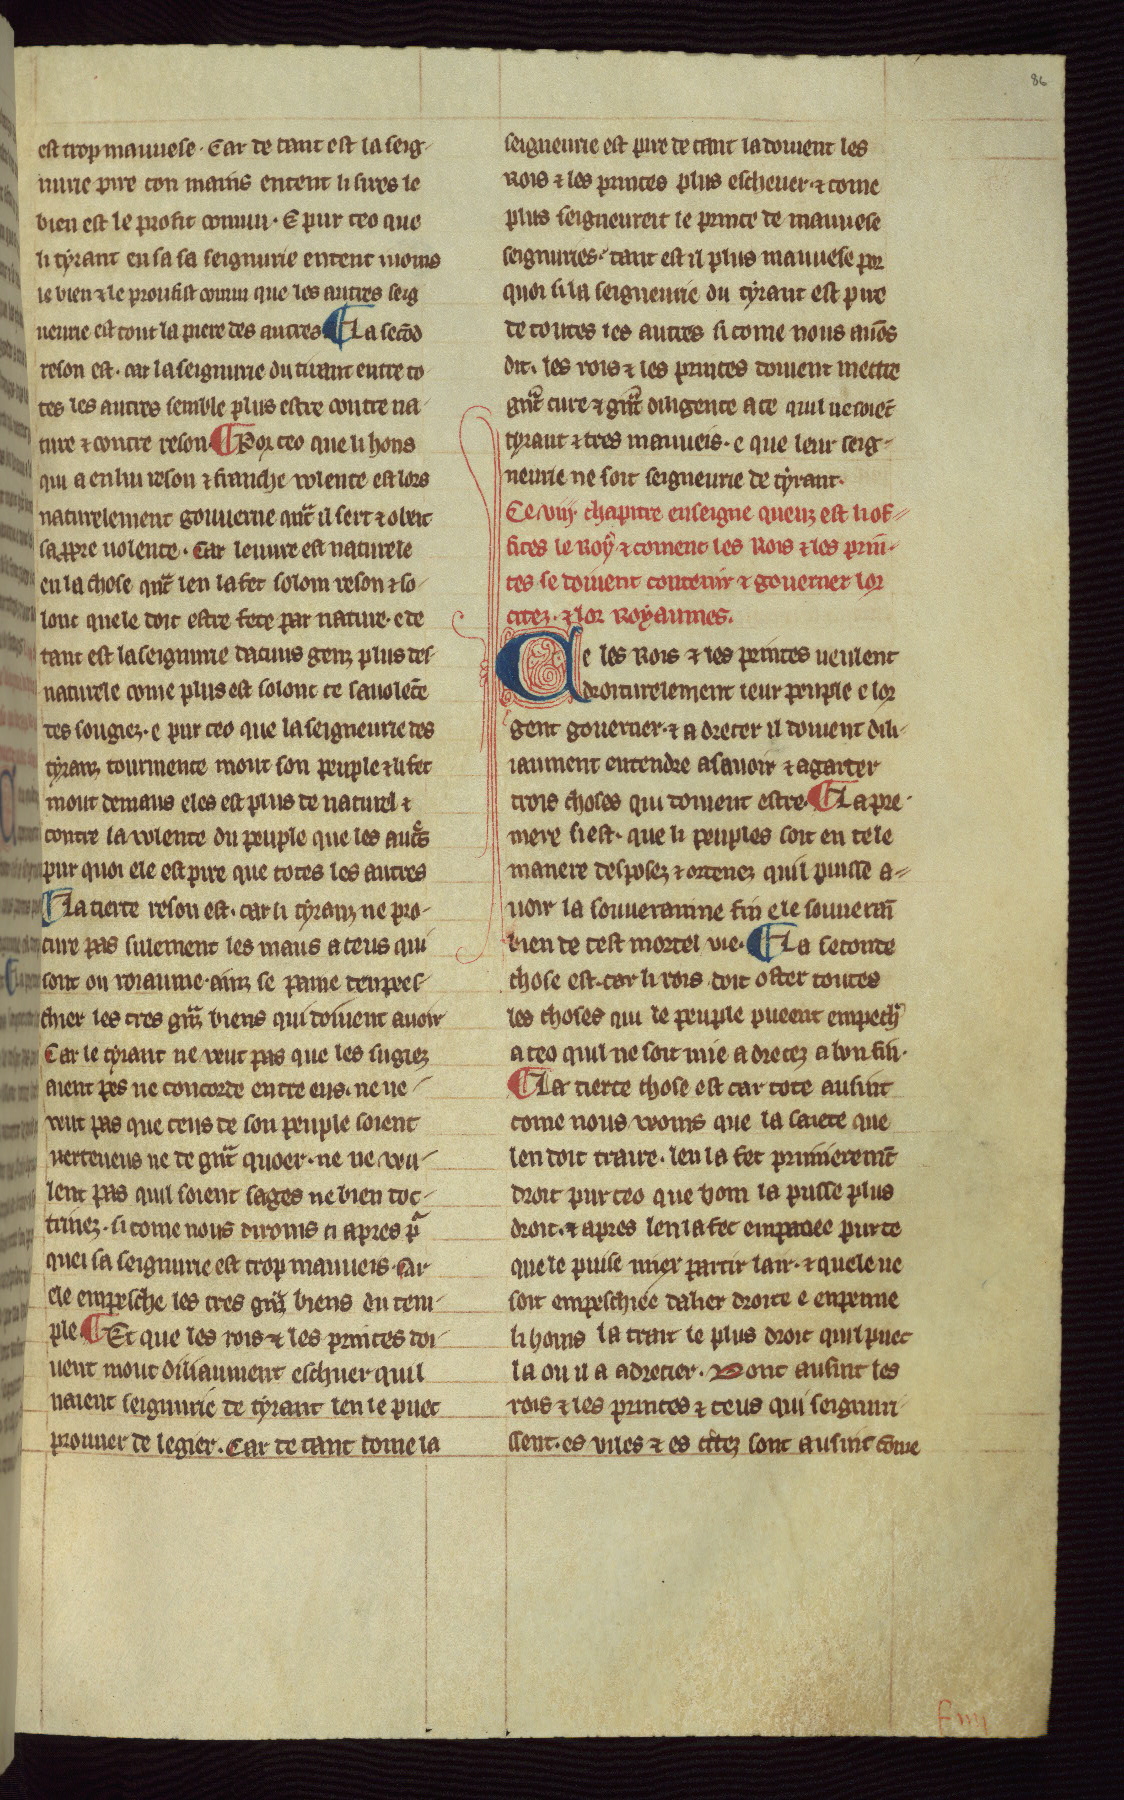 86
est trop mauuese. Car de tant est la seig-
nurie pire con mains entent li sires le
bien est le profit commun. E pur ceo que
li tyrant en sa sa seignurie entent moins
le bien ⁊ le proufist comun que les autres seig
neurie est tout la piere des autres ¶ La secōd
reson est. car la seignurie du tirant entre to
tes les autres semble plus estre contre na-
ture ⁊ contre reson ¶ Por ceo que li hons
qui a en lui reson ⁊ franche volente est lors
naturelement gouuerne quāt il sert ⁊ obeit
sa ppre uolente. Car leuure est naturele
en la chose quāt len la fet solom reson ⁊ so-
lonc quele doit estre fete par nature. e de
tant est la seignurie dacuns genz plus des-
naturele come plus est solonc ce sa uolēte
des sougiez. e pur ceo que la seigneurie des
tyranz tourmente mout son peuple ⁊ li fet
mout demaus ele est plus de naturel ⁊
contre la volente du peuple que les autrs
pur quoi ele est pire que totes les autres
¶ La tierce reson est. car li tyranz ne pro-
cure pas sulement les maus a ceus qui
sont ou roiaume. ainz se paine denpees-
chier les tres grāz biens qui doiuent auoir
Car le tyrant ne veut pas que les sugiez
aient pes ne concorde entre eus. ne ne
veut pas que ceus de son peuple soient
uertueus ne de grāt quoer. ne ne veu-
lent pas quil soient sages ne bien doc-
trinez. si come nous diroms ci apres p
quei sa seignurie est trop mauueis. Car
ele empesche les tres grāz biens du peu-
ple ¶ Et que les rois ⁊ les princes doi-
uent mout diliaument eschiuer quil
naient seignurie de tyrant len le puet
prouuer de legier. Car de tant come la
seigneurie est pire de tant la doiuent les
Rois ⁊ les princes plus escheuer. ⁊ come
plus seigneureit le prince de mauuese
seignuries. tant est il plus mauuese par
quoi si la seigneurie du tyrant est pire
de toutes les autres si come nous auōs
dit. les rois ⁊ les princes doiuent mettre
grāt cure ⁊ grāt diligence a ce quil ne soiēt
tyrant ⁊ tres mauueis. e que leur seig-
neurie ne soit seigneurie de tyrant.
Ce viij. chapitre enseigne queuz est li of-
fices le Roy ⁊ coment les Rois ⁊ les prin-
ces se doiuent contenir ⁊ gouerner lor
citez. ⁊ lor Royaumes.
Ce les Rois ⁊ les princes ueulent
droiturelement leur peuple e lor
gent gouerner. ⁊ a drecer il doiuent dili-
iaument entendre a sauoir ⁊ agarder
trois choses qui doiuent estre. ¶ La pre-
mere si est. que li peuples soit en tele
manere desposez ⁊ ordenez quil puisse a-
uoir la souueraine fin e le souuerain
bien de cest mortel vie. ¶ La seconde
chose est. car li rois doit oster toutes
les choses qui le peuple pueent empechr
a ceo quil ne soit mie a drecez a bon fin.
¶ La tierce chose est car tote ausint
come nous veoms que la saiete que
len doit traire. len la fet primierement
droit pur ceo que hom la pusse plus
droit. ⁊ apres len la fet empanee pur ce
que le puise miex partir lair. ⁊ quele ne
soit empeschiee daler droite e enpenne
li homs la trait le plus droit quil puet
la ou il a adrecier. Dont ausint les
rois ⁊ les princes ⁊ ceus qui seignuri-
ssent. es viles ⁊ es citez sont ausint come